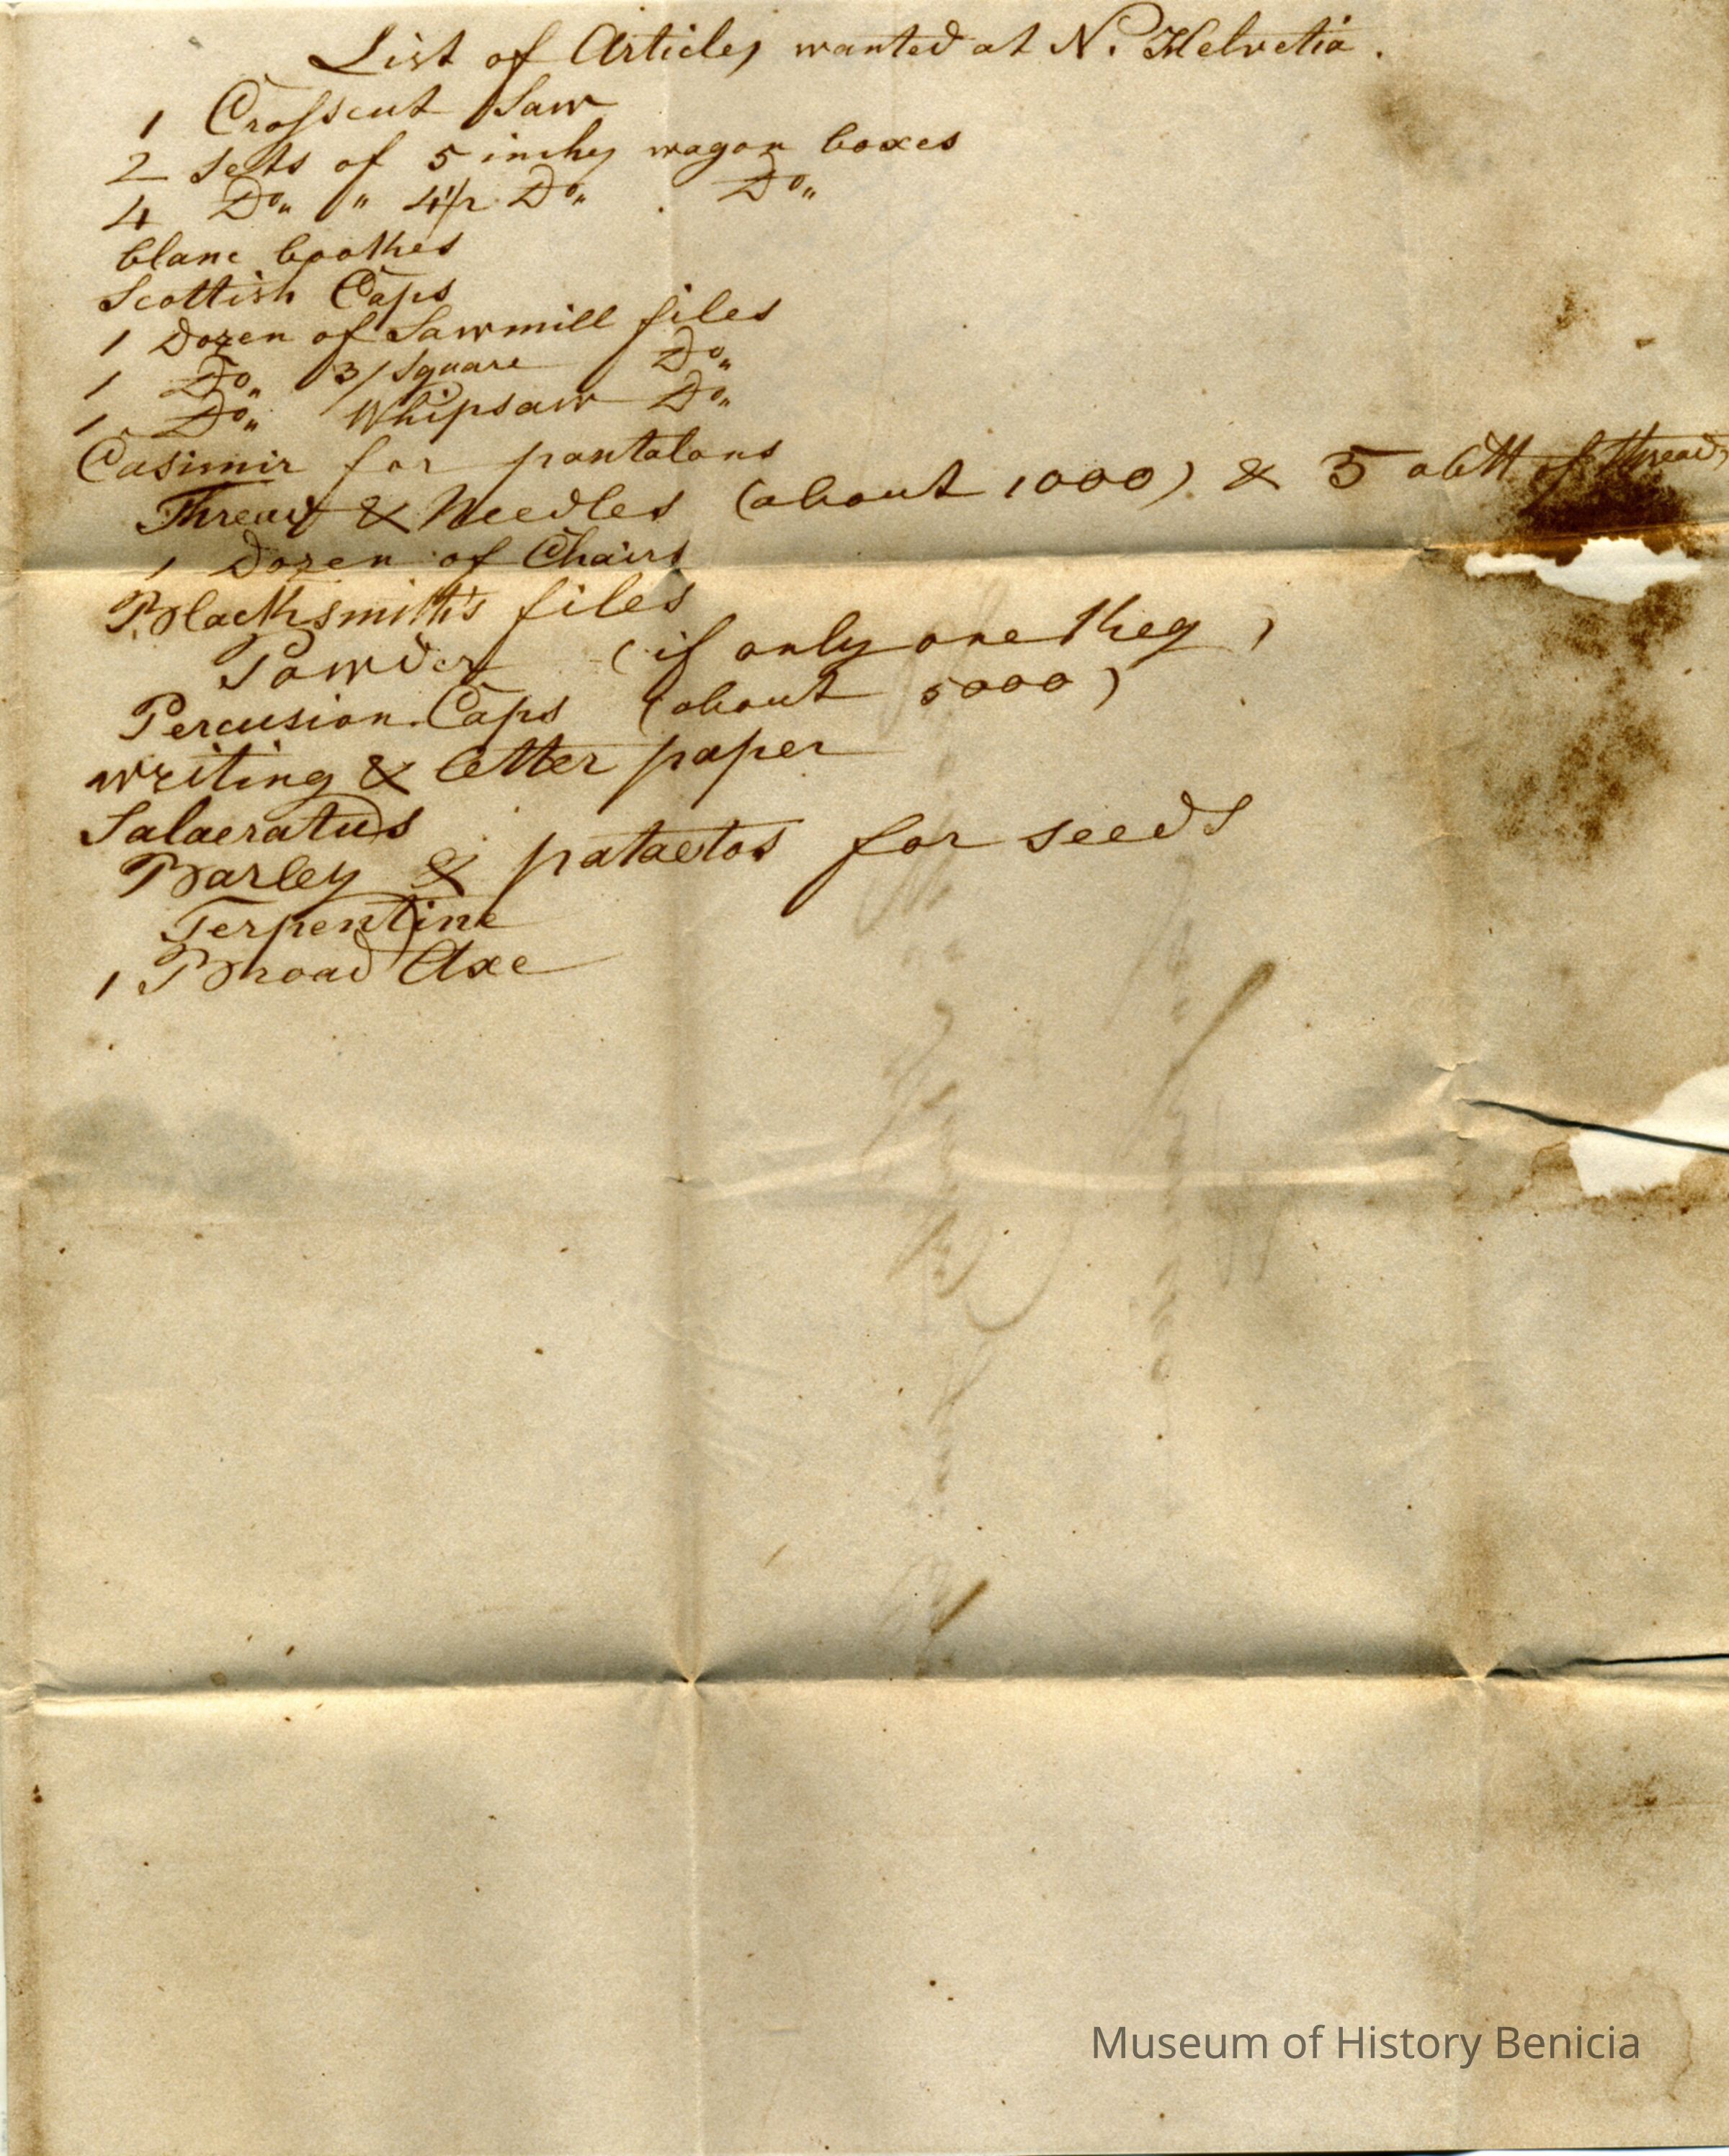 List of Articles wanted at N. Helvetia.
1 Crosscut Saw
2 Setts of 5 inches wagon boxes
4 Do„ „ 4½ Do„ Do„
blanc bookes
Scottish Caps
1 Dozen of Sawmill files
1 Do„ 3/square Do„
1 Do„ Whipsaw Do„
Casimir for pantalons
Thread & Needles (about 1000) & 5 of thread
1 Dozen of Chairs
Blacksmith's files
Powder (if only one Keg)
Percusion Caps (about 5000)
writing & letter paper
Salaeratus
Barley & pataetos for seeds
Terpentine
1 Broad Axe
Museum of History Benicia